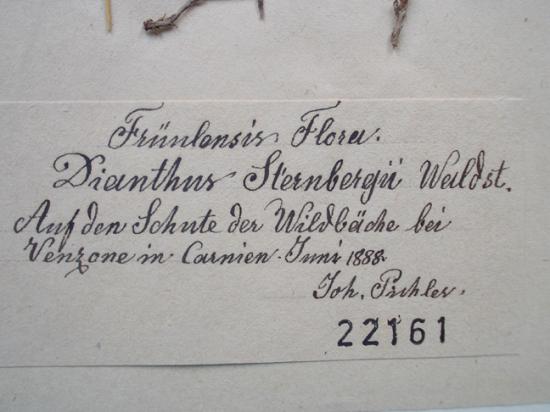 Früulensis Flora.
Dianthus Sternbergii Waldst.
Auf den Schute der Wildbäche bei
Venzone in Carnien. Juni 1888.
Joh. Pichler.
22161